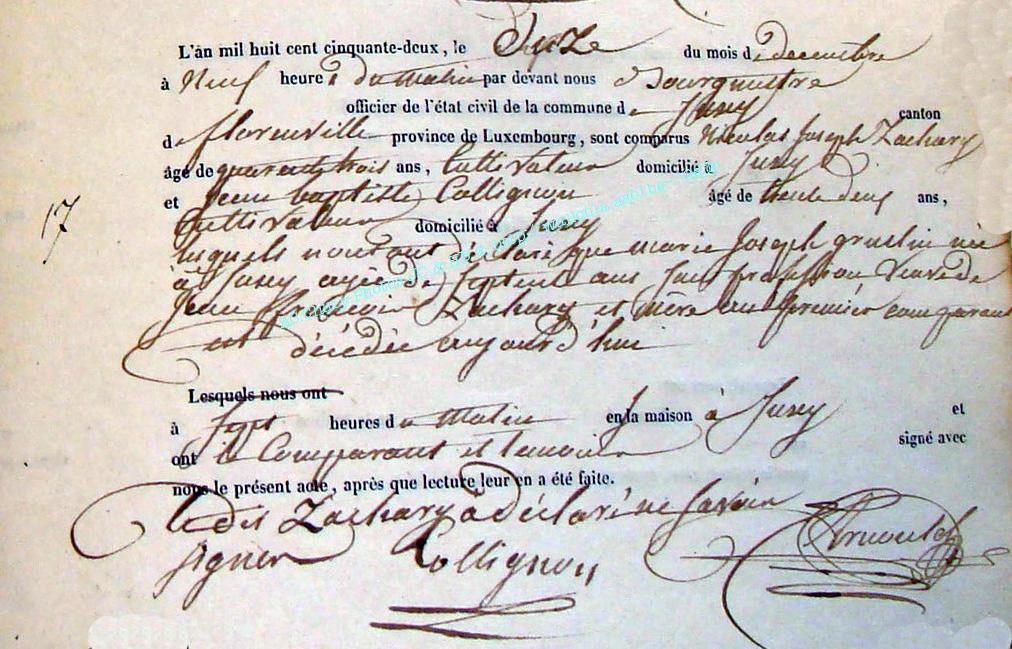 L'àn mil huit cent cinquante-deux, le Seize du mois de decembre
à Neuf heures du matin par devant nous Bourgmestre
officier de l'état civil de la commune de Jusey canton
de florenville province de Luxembourg, sont comparus Nicolas Joseph Zachary
âgé de quarente trois ans, Cultivateur domicilié à Jusey
et Jean baptiste Collignon âgé de trente deux ans,
17
Cultivateur domicilié à Jusey
lesquels nous ont déclaré que marie Joseph née
à Jusey agée de Septente ans San profession Veuve de
Jean françois Zachary et mère au premier comparant
est décédée aujourd'hui
Lesquels nous ont
à Sept heures du matin en la maison à Jusey et
ont le Comparant et temoin signé avec
nous le présent acte, après que lecture leur en a été faite.
ledit Zachary à déclaré ne Savoir
signer Collignon